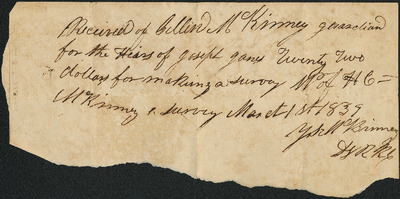 Received of Collin McKinney guardian
for the Heirs of Joseph Janes Twenty Two
dollars for making a survey of H C
McKinney s survey March 1st 1839
McKinney